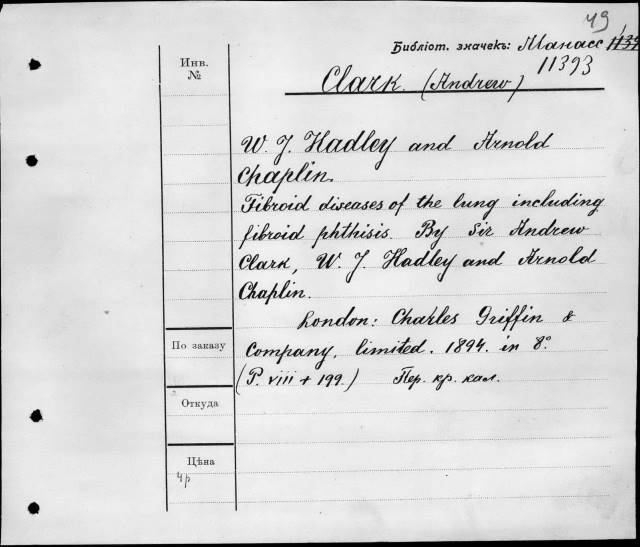 49
Библіот. значекъ: Манасс
11393
Инв.
№
Clark. (Andrew)
W. J. Hadley and Arnold
Chaplin.
Fibroid diseases of the lung including
fibroid phthisis. By Sir Andrew
Clark, W. J. Hadley and Arnold
Chaplin.
London: Charles Griffin &
Company, limited. 1894. in 8°.
(P. viii + 199.) Пер. кр. кал.
По заказу
Откуда
Цѣна
4р